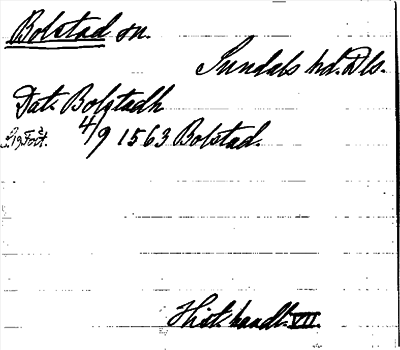 Bolstad sn.
Sundals hd. Dls.
Dat. Bolstadh
4/9 1563 Bolstad.
Hist. handl. VII.